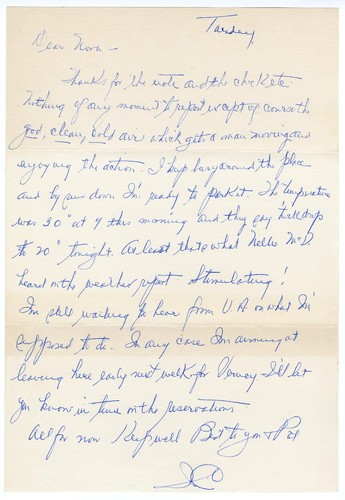 Tuesday
Dear Nora -
Thanks for the note and the check etc
Nothing of any moment to report except of course the
good, clean, cold air which gets a man moving and
enjoying the action. I keep busy around the place
and by sun down I'm ready to park it. The temperature
was 30° at 7 this morning and they say t'will drop
to 20° tonight. At least that's what Nellie McD.
heard on the weather report. Stimulating!
I'm still waiting to hear from U.A on what I'm
supposed to do. In any case I'm aiming at
leaving here early next week for I'll let
you know in time on the reservations.
All for now Keep well Best to you & Pat